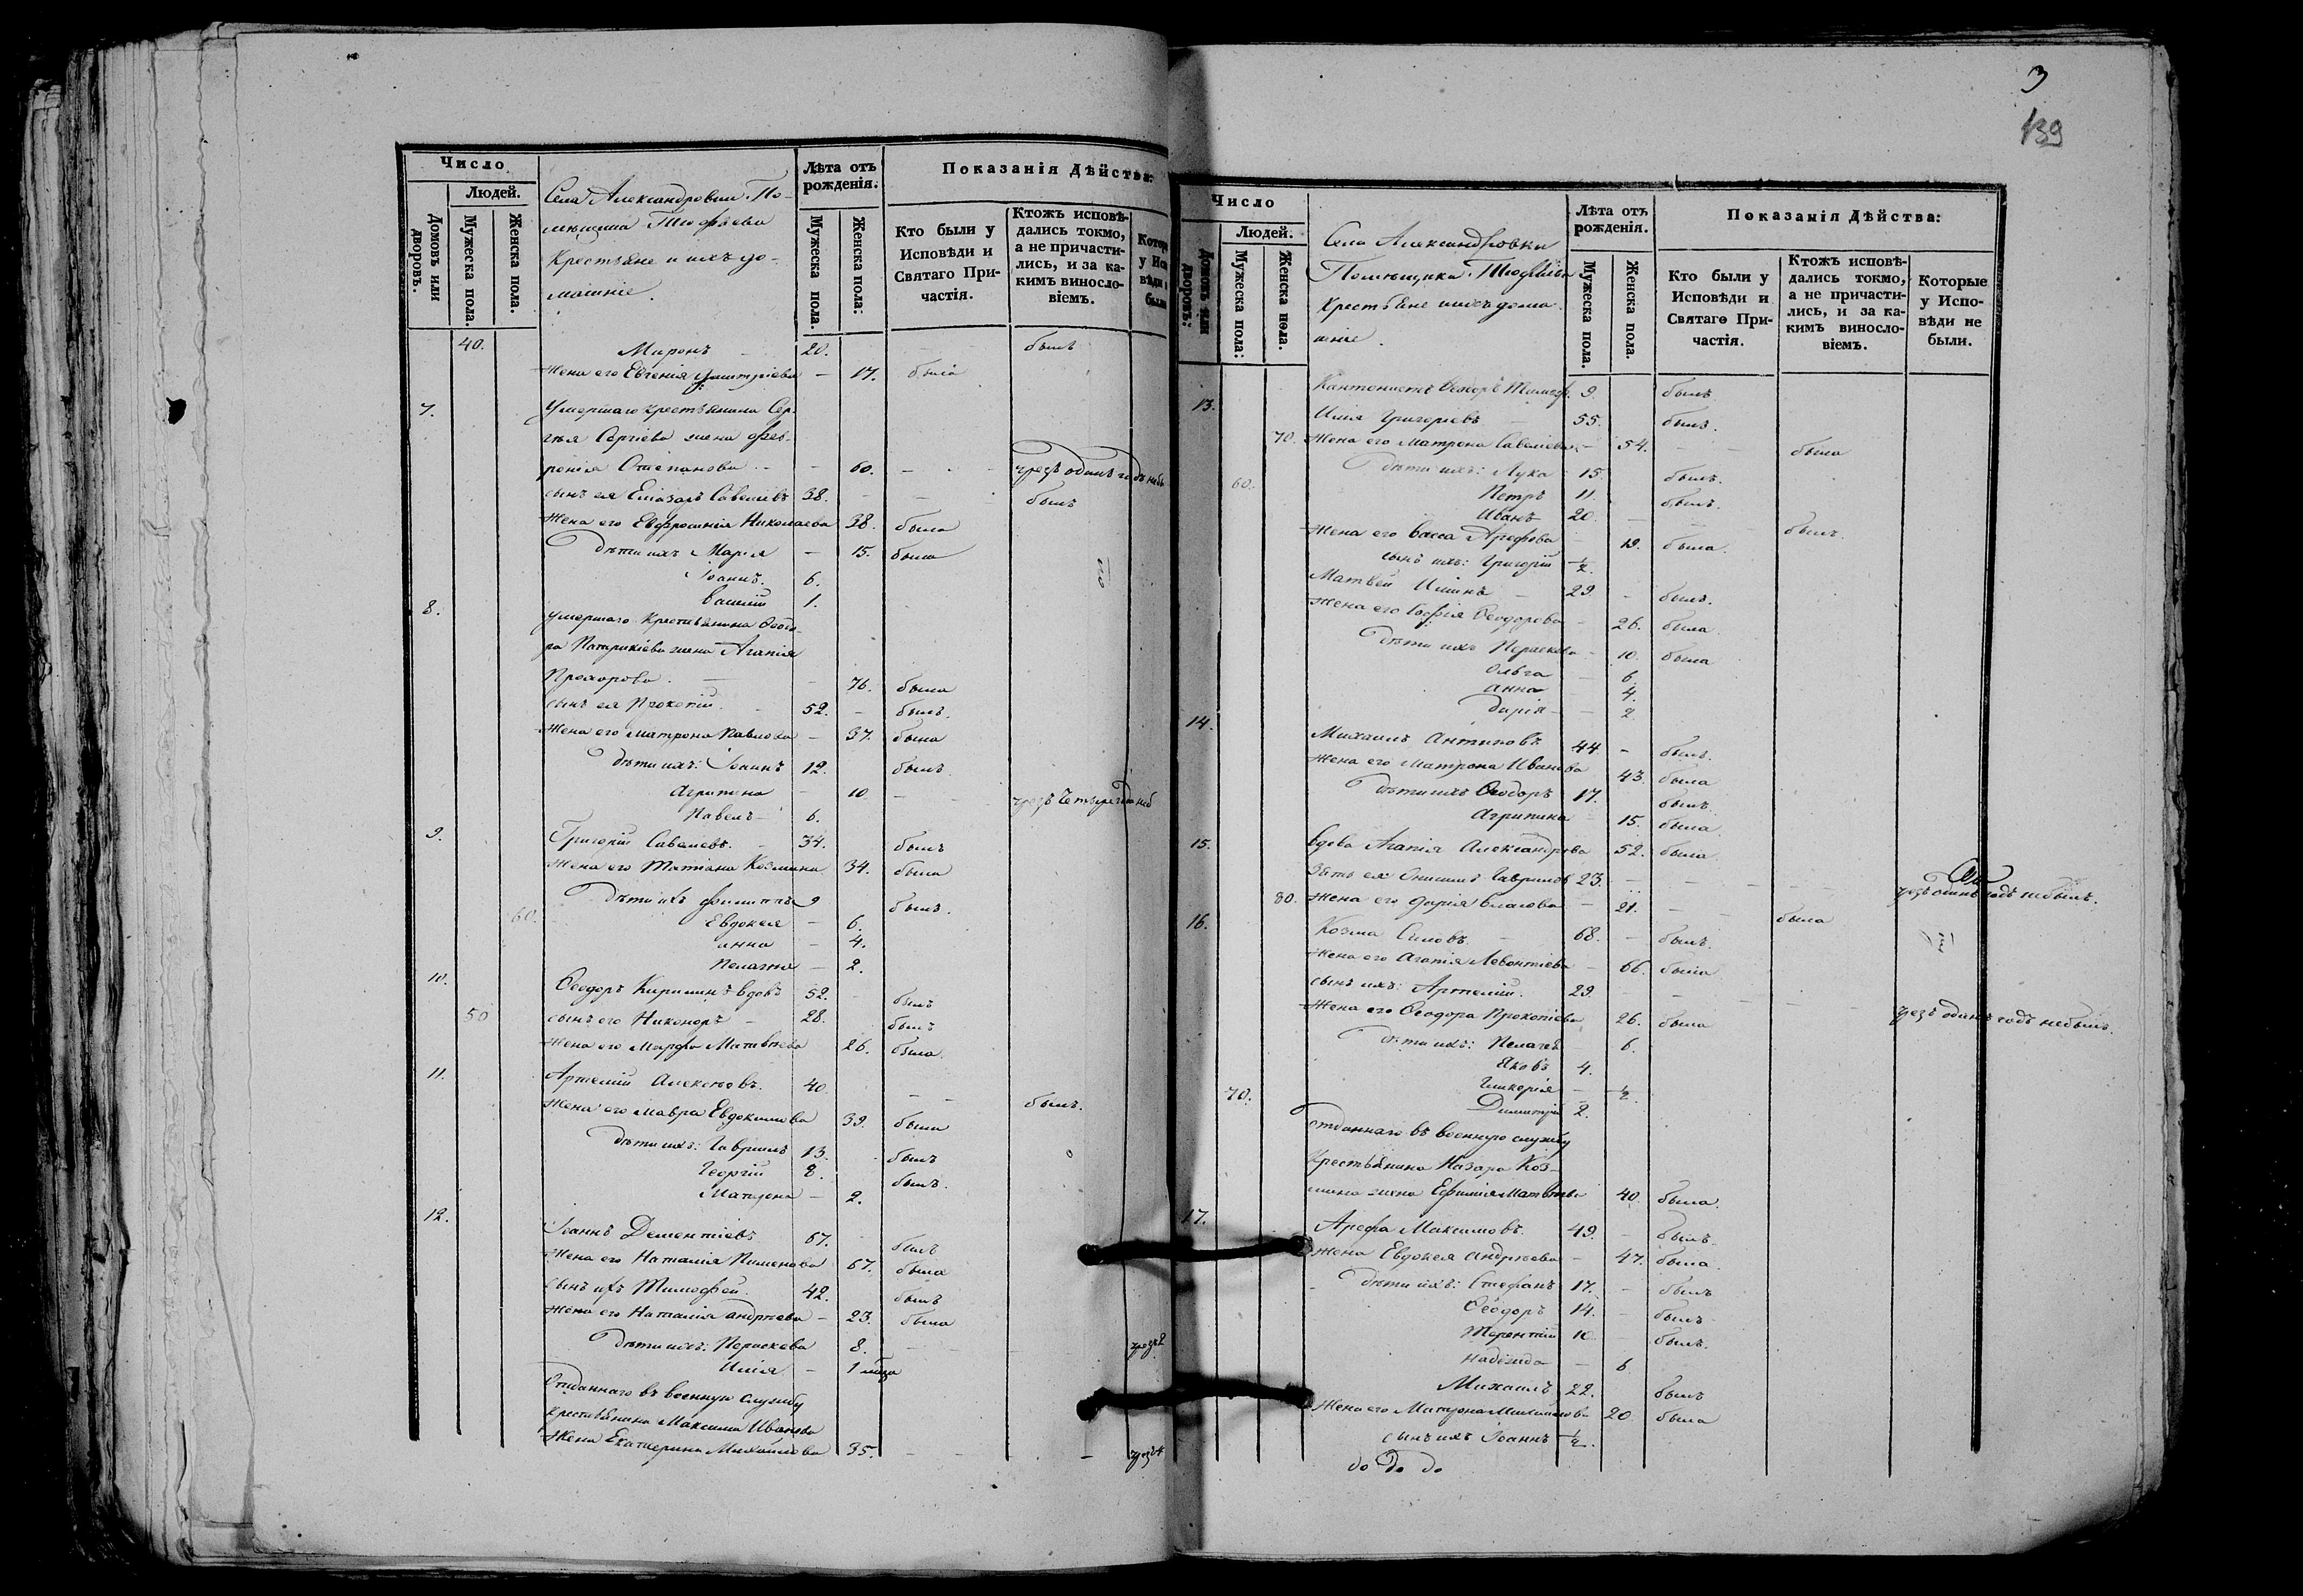 Число
Людей.
Домовъ или дворовъ.
Мужеска пола.
Женска пола.
Села Александровки По-
мѣщика Тюфяева
Крестьяне и ихъ до-
машніе.
Лѣта отъ рожденія.
Мужеска пола.
Женска пола:
Показанія Дѣйства:
Кто были у Исповѣди и Святаго При-частія.
Ктожъ исповѣ-дались токмо, а не причасти-лись, и за ка-кимъ винosло-віемъ.
40. Миронъ 20. былъ
Жена его Евгенія Димитріева – 17. была
7. Умершаго крестьянина Сер-
гѣя Сергіева жена Фев-
ронія Степанова – 60. чрезъ одинъ годъ
сынъ ея Елиазаръ Савельевъ 38. былъ
Жена его Евфросинія Николаева 38. была
дѣти ихъ Марія – 15. была
Іоаннъ. 6.
Василій 1.
8. умершаго Крестьянина Ѳеодо-
ра Патрикіева жена Агапія
Прохорова. – 76. была
сынъ ея Прокопій. 52. – былъ.
Жена его Матрона Павлова – 37. была
дѣти ихъ: Іоаннъ 12. былъ
Агрипина – 10. чрезъ четыре года
Павелъ 6.
9. Григорій Савельевъ. 34. былъ
Жена его Татіана Козмина 34. была
дѣти ихъ Филиппъ 9 былъ.
60. Евдокея – 6.
Анна – 4.
Пелагея – 2.
10. Ѳеодоръ Кирилинъ вдовъ 52. былъ
50 сынъ его Никоноръ – 28. былъ
Жена его Марфа Матвѣева 26. была.
11. Артемій Алексѣевъ. 40. былъ.
Жена его Мавра Евдокимова 39. была
дѣти ихъ: Гавріилъ 13. былъ
Георгій 8. былъ.
Матрона – 2.
12. Іоаннъ Дементіевъ 67. былъ
Жена его Наталія Пименова 67. была
сынъ ихъ Тимофей. 42. былъ
Жена его Наталія Андрѣева – 23. была
дѣти ихъ: Параскева 8. чрезъ 2
Илія – 1
Отданнаго въ военную службу
крестьянина Максима Иванова
Жена Екатерина Михайлова 35. – чрезъ 4
3
139
Число
Людей.
Домовъ или дворовъ:
Мужеска пола:
Женска пола.
Села Александровки
Помѣщика Тюфяева
Крестьяне и ихъ дома-
шніе.
Лѣта отъ рожденія.
Мужеска пола.
Женска пола.
Показанія Дѣйства:
Кто были у Исповѣди и Святаго При-частія.
Ктожъ исповѣ-дались токмо, а не причасти-лись, и за ка-кимъ винosло-віемъ.
Которые у Испо-вѣди не были.
Кантонистъ Ѳеодоръ Тимоф. 9. былъ
13. Илія Григоріевъ 55. былъ.
70. Жена его Матрона Савеліева – 54. была
дѣти ихъ: Лука 15. былъ.
60. Петръ 11. былъ.
Иванъ 20. былъ.
Жена его Васса Арефова 19. была.
сынъ ихъ: Григорій 1/2.
Матвей Илiинъ 29. – былъ.
Жена его Софія Ѳеодорова 26. была
дѣти ихъ Параскева – 10. была
Ольга 6.
Анна 4.
Дарія 2.
14. Михаилъ Антиповъ 44. – былъ.
Жена его Матрона Иванова 43. была
дѣти ихъ Ѳеодоръ 17. былъ.
Агрипина 15. была.
15. Вдова Агапія Александрова 52. была.
Зять ея Онисимъ Гавриловъ 23. чрезъ одинъ годъ небылъ.
80. Жена его Дарія Власова – 21. была
16. Козма Силовъ. 68. – былъ.
Жена его Агапія Левонтіева 66. была
сынъ ихъ: Артемій. 29. чрезъ одинъ годъ небылъ.
Жена его Ѳеодора Прокопіева 26. была
дѣти ихъ: Пелагея 6.
Яковъ 4.
70. Гликерія – 1/2.
Димитрій 2.
Отданнаго въ военную службу
Крестьянина Назара Коз-
мина жена Ефимія Матвѣева 40. была.
17. Арефа Максимовъ. 49. – былъ.
Жена Евдокея Андрѣева – 47. была.
дѣти ихъ: Стефанъ 17. – былъ
Ѳеодоръ 14. былъ
Терентій 10. – былъ.
Надежда – 6
Михаилъ 22. былъ
Жена его Матрона Михайлова 20. была
сынъ ихъ Іоаннъ 1/2.